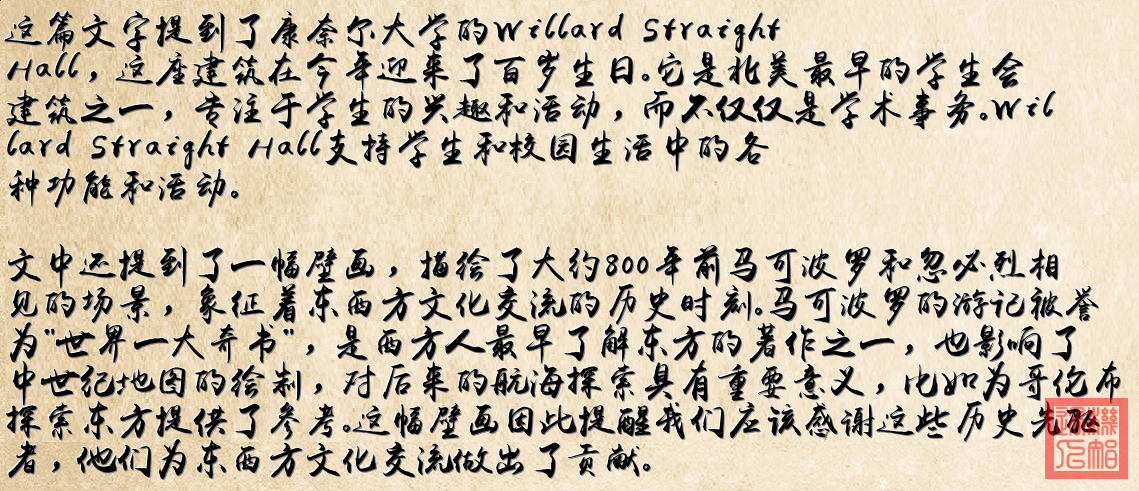 这篇文字提到了康奈尔大学的Willard Straight
Hall，这座建筑在今年迎来了百岁生日。它是北美最早的学生会
建筑之一，专注于学生的兴趣和活动，而不仅仅是学术事务。Wil
lard Straight Hall支持学生和校园生活中的各
种功能和活动。
文中还提到了一幅壁画，描绘了大约800年前马可波罗和忽必烈相
见的场景，象征着东西方文化交流的历史时刻。马可波罗的游记被誉
为"世界一大奇书"，是西方人最早了解东方的著作之一，也影响了
中世纪地图的绘制，对后来的航海探索具有重要意义，比如为哥伦布
探索东方提供了参考。这幅壁画因此提醒我们应该感谢这些历史先驱
者，他们为东西方文化交流做出了贡献。